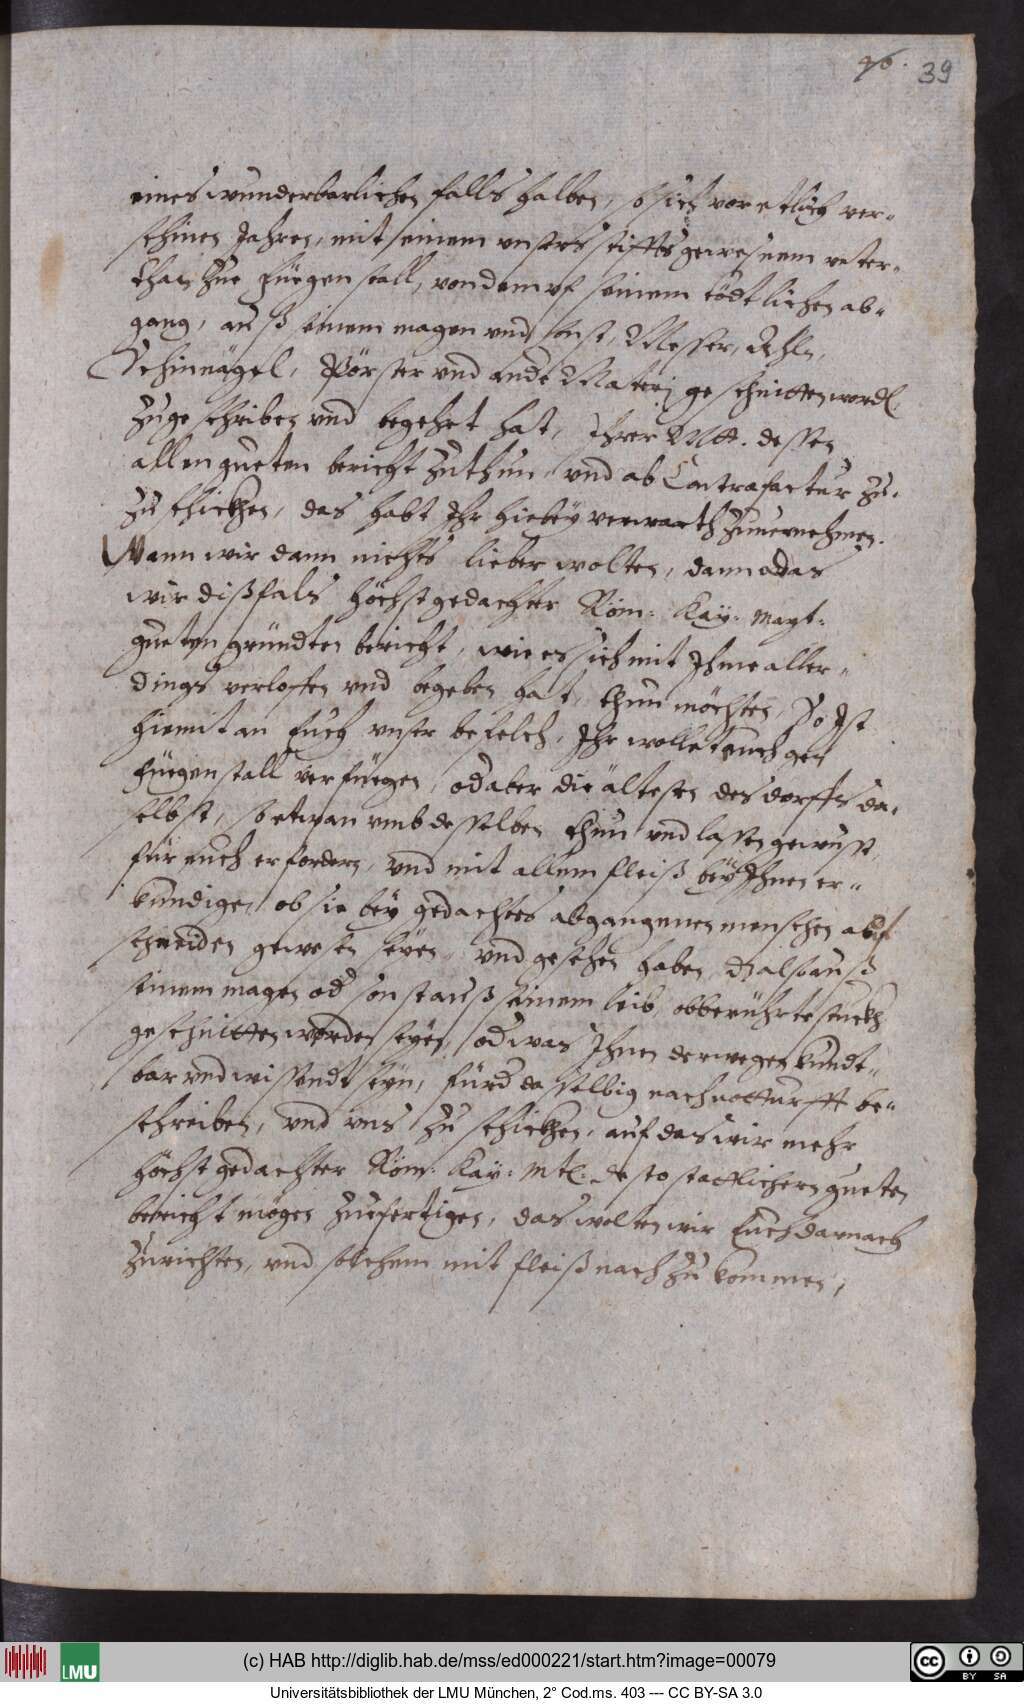 46. 39
eines wunderbarlichen falls halben, so sich vor etlich ver-
schinen Jahren, mit seinem vnsers stiffts gewesnem vnter-
than zue Füegenstall, von dem vf seinem tödtlichen ab-
gang, auß seinem magen vnd sonst, Messer, Ahln,
Schinnägel, Pörster vnd ande Materj geschnitten word.
zugeschriben vnd begehrt hat, Ihrer Mtt. dessen
allen gueten bericht zuthun, vnd ab Contrafactur zu-
zuschickhen, das habt Ihr hiebeÿ verwarth zuuernehmen.
Wann wir dann nichts lieber wolten, dann das
wir dißfals höchstgedachter Röm: Kaÿ: mayt:
gueten gründten bericht, wie es sich mit Ihme aller-
dings verloffen vnd begeben hat, thun möchten, So Ist
hiemit an Euch vnser befelch, Ihr wollet euch gen
Füegenstall verfüegen, od aber die ältesten des dorffs da-
selbst, so etwan vmb desselben thun vnd lassen gewust,
für euch erfordern, vnd mit allem fleiß beÿ Ihnen er-
kundigen, ob sie beÿ gedachtes abgangenen menschen auf
schneiden gewesen seÿen, vnd gesehen haben, dz also auß
seinem magen od sonst auß seinem leib, obberührte stuckh
geschnitten worden seÿen, od was Ihnen derwegen kundt-
bar vnd wissendt seÿn, fürd dasselbig nach notturfft be-
schreiben, vnd vns zu schickhen, auf das wir mehr
höchstgedachter Röm: Kaÿ: Mtt: desto stattlichern gueten
bericht mögen zuefertigen, das wolten wir Euch darnach
zurichten, vnd solchem mit fleiß nach zu kommen,
(c) HAB http://diglib.hab.de/mss/ed000221/start.htm?image=00079
LMU
cc BY SA
Universitätsbibliothek der LMU München, 2° Cod.ms. 403 --- CC BY-SA 3.0